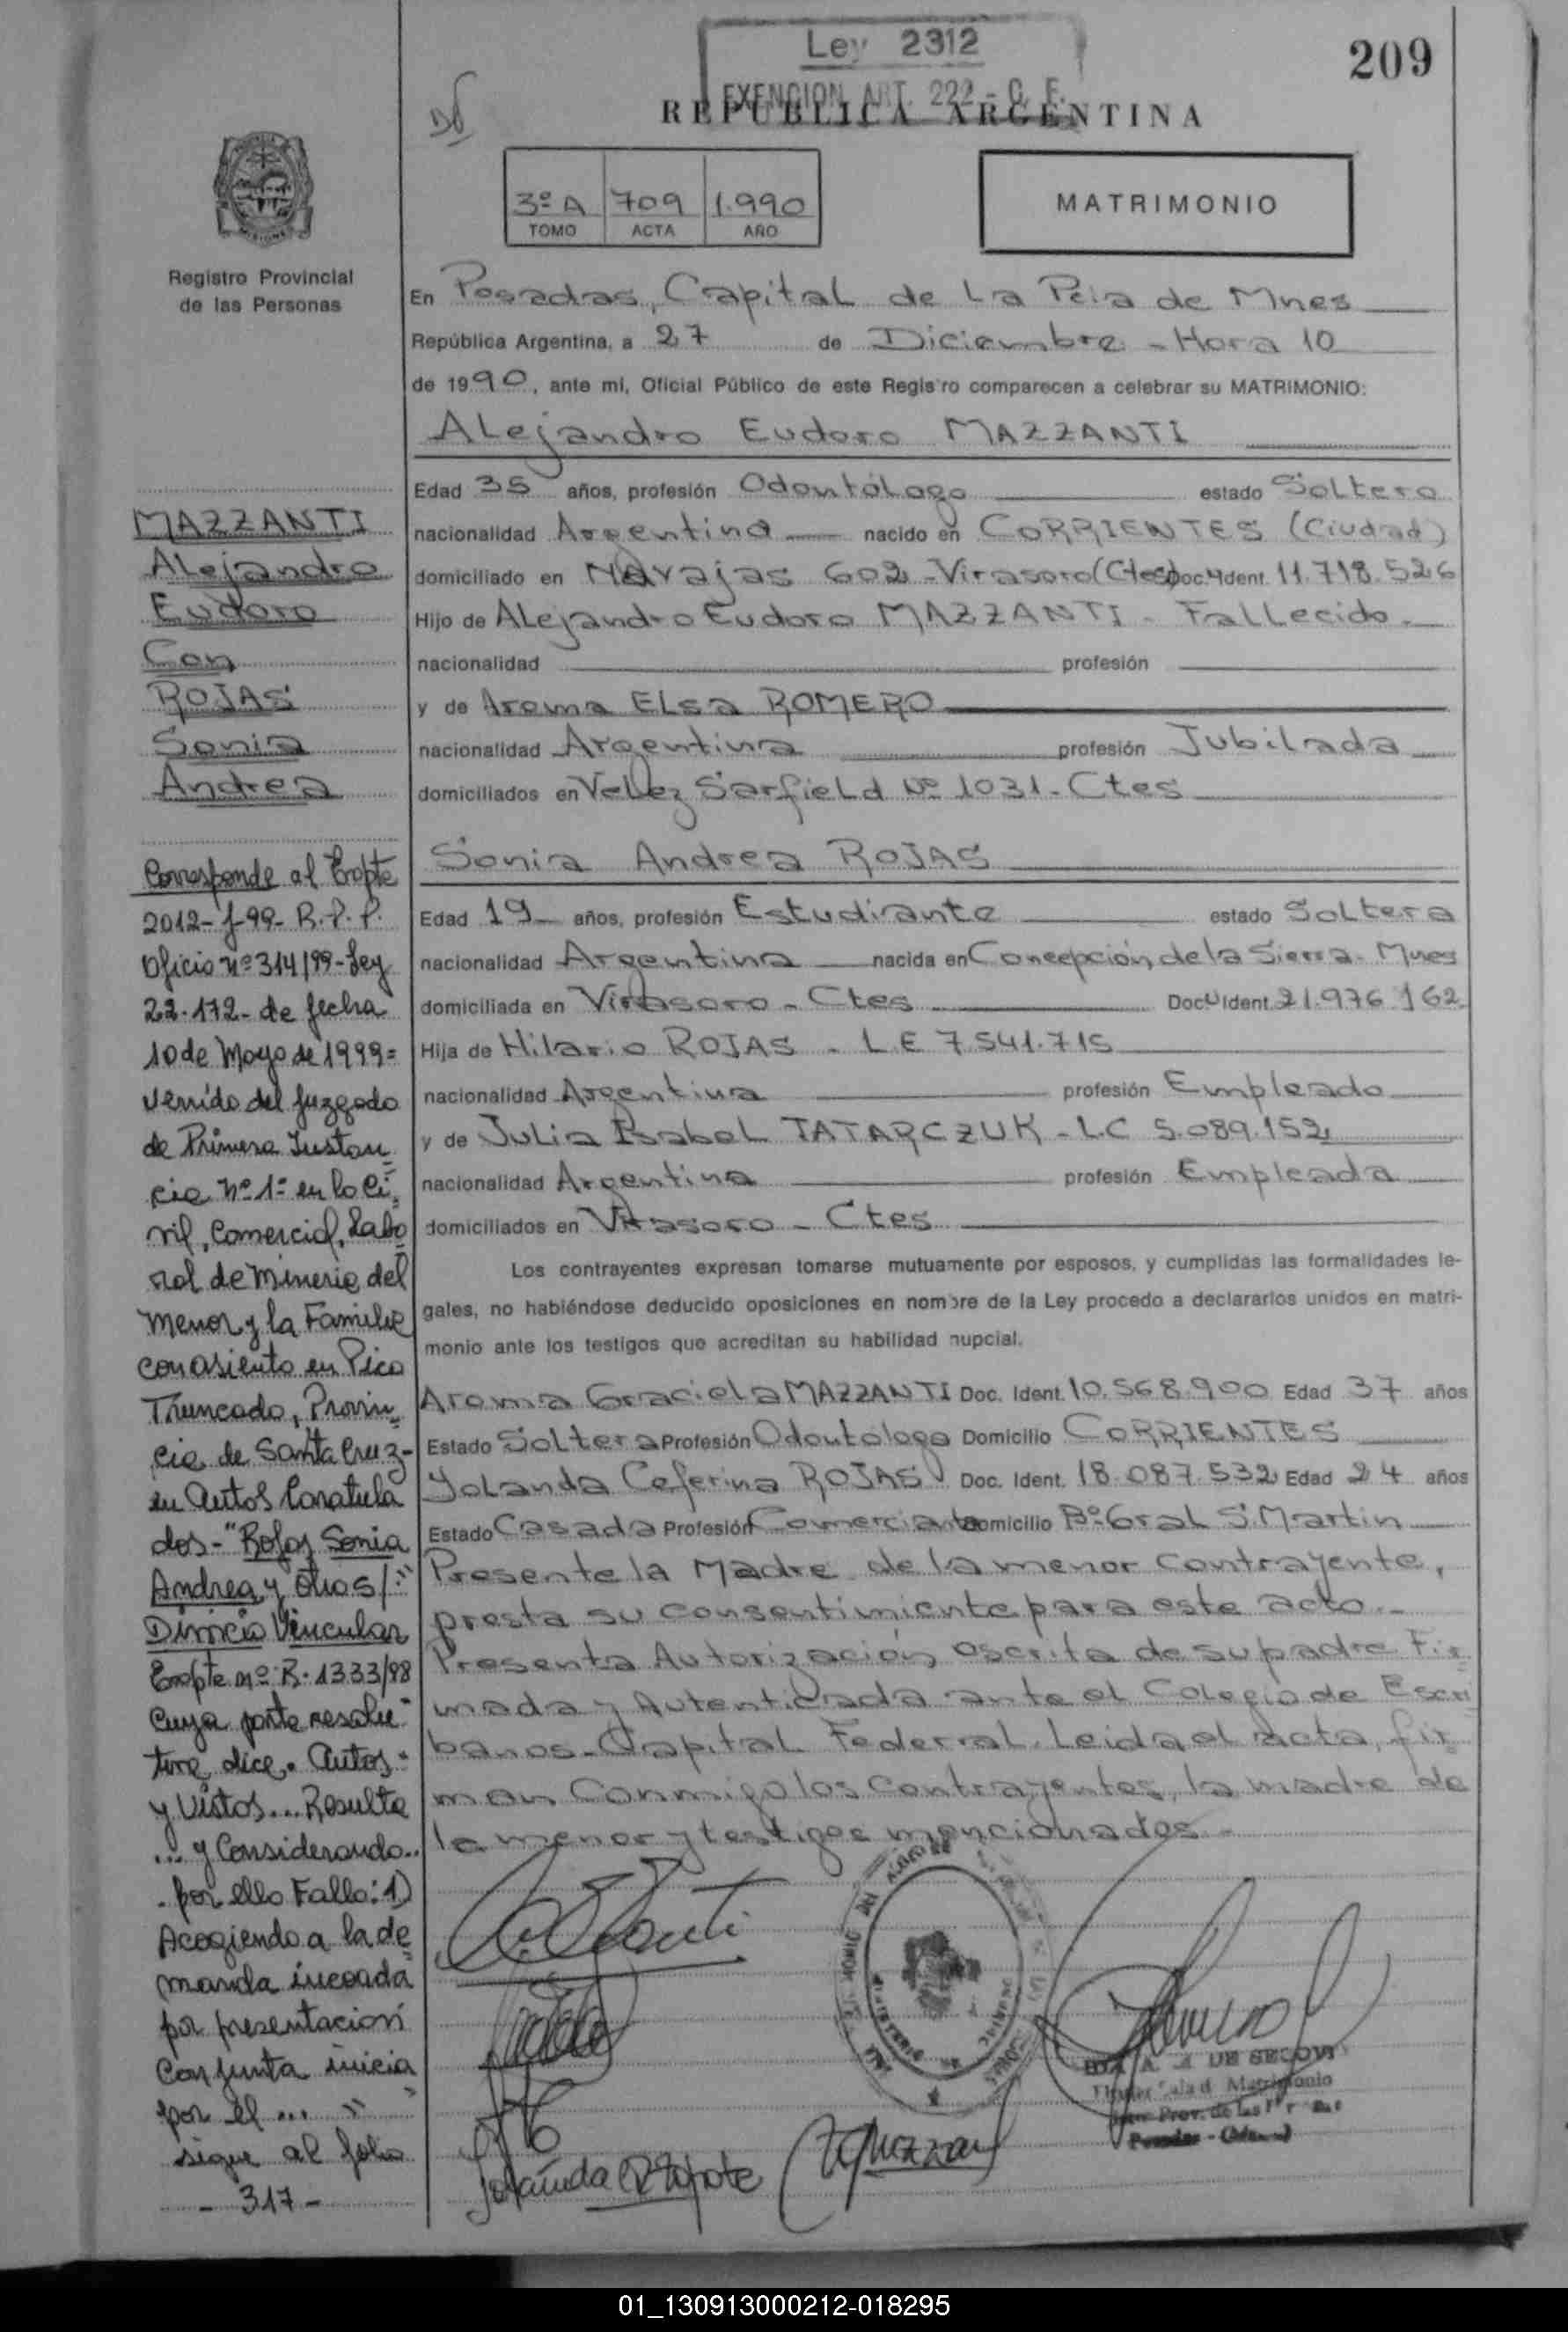 209
Ley 2312
EXENCION ART. 222 - C. F.
REPUBLICA ARGENTINA
3º A 709 1.990
TOMO ACTA AÑO
MATRIMONIO
Registro Provincial
de las Personas
En Posadas, Capital de La Pcia de Mnes
República Argentina, a 27 de Diciembre - Hora 10
de 1990, ante mi, Oficial Público de este Registro comparecen a celebrar su MATRIMONIO:
Alejandro Eudoro MAZZANTI
Edad 35 años, profesión Odontólogo estado Soltero
nacionalidad Argentina nacido en CORRIENTES (Ciudad)
domiciliado en Navajas 602 - Virasoro (Ctes) Doc. Ident. 11.718.526
Hijo de Alejandro Eudoro MAZZANTI - Fallecido -
nacionalidad profesión
y de Aroma ELsa ROMERO
nacionalidad Argentina profesión Jubilada
domiciliados en Velez Sarfield Nº 1031 - Ctes
Sonia Andrea ROJAS
Edad 19 años, profesión Estudiante estado Soltera
nacionalidad Argentina nacida en Concepción de la Sierra - Mnes
domiciliada en Virasoro - Ctes Doc U Ident. 21.976.162
Hija de Hilario ROJAS - L.E 7.541.715
nacionalidad Argentina profesión Empleado
y de Julia Isabel TATARCZUK - L.C 5.089.152
nacionalidad Argentina profesión Empleada
domiciliados en Virasoro - Ctes
Los contrayentes expresan tomarse mutuamente por esposos, y cumplidas las formalidades le-
gales, no habiéndose deducido oposiciones en nombre de la Ley procedo a declararlos unidos en matri-
monio ante los testigos que acreditan su habilidad nupcial.
Aroma Graciela MAZZANTI Doc. Ident. 10.568.900 Edad 37 años
Estado Soltera Profesión Odontologa Domicilio CORRIENTES
Yolanda Ceferina ROJAS Doc. Ident. 18.087.532 Edad 24 años
Estado Casada Profesión Comerciante Domicilio Bº Gral S. Martin
Presente la Madre de la menor contrayente,
presta su consentimiento para este acto.-
Presenta Autorización escrita de su padre Fir
mada y Autenticada ante el Colegio de Escri
banos - Capital Federal. Leida el acta, fir
man conmigo los contrayentes, la madre de
la menor y testigos mencionados -
MAZZANTI
Alejandro
Eudoro
Con
ROJAS
Sonia
Andrea
Corresponde al Expte
2012-J-99- R.P.P.
Oficio nº 314/99 - Ley
22.172 - de fecha
10 de Mayo de 1999=
venido del Juzgado
de Primera Instan
cia nº 1º en lo Ci
vil, Comercial, Labo
ral de Mineria del
Menor y la Familia
con asiento en Pico
Truncado, Provin
cia de Santa Cruz -
en Autos Caratula
dos - "Rojas Sonia
Andrea y Otros /"
Divorcio Vincular
Expte nº R. 1333/98
Cuya parte resolu
tiva dice. Autos
y Vistos... Resulta
... y Considerando..
. por ello Fallo: 1)
Acogiendo a la de
manda incoada
por presentación
Conjunta inicia
por el ... "
sigue al folio
- 317 -
DE SEGOVI
Matrimonio
01_130913000212-018295